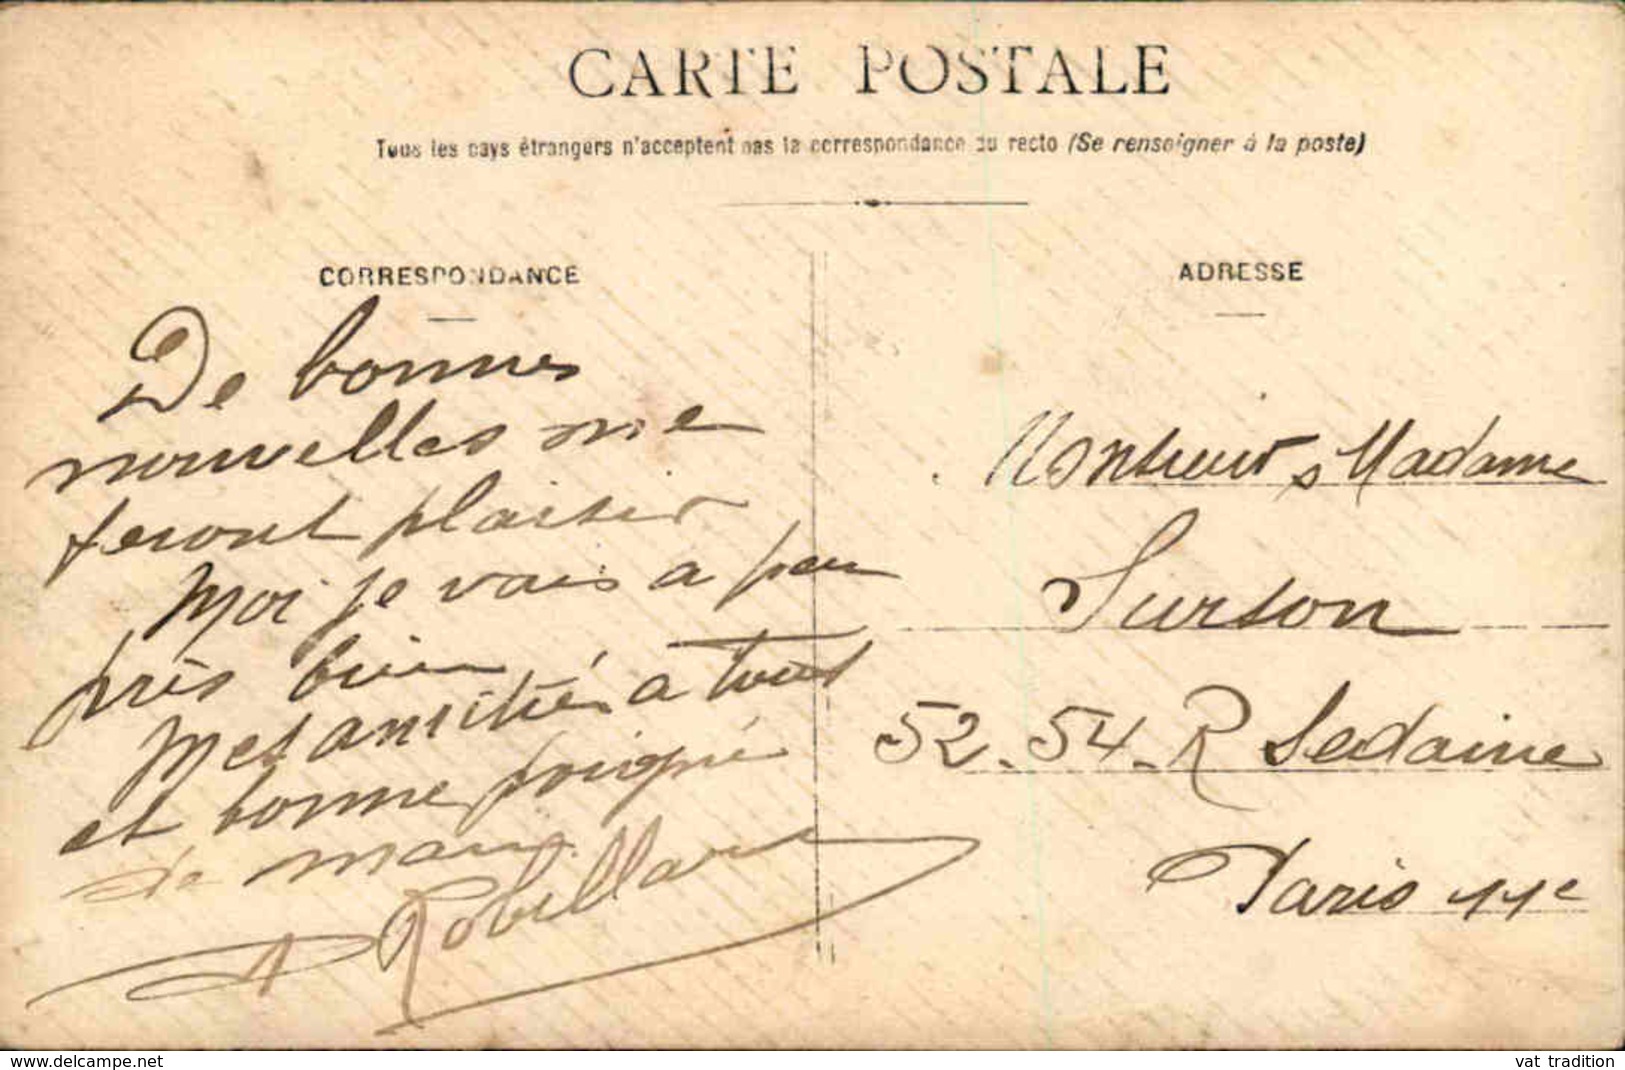 CARTE POSTALE
Tous les pays étrangers n'acceptent pas la correspondance au recto (Se renseigner à la poste)
CORRESPONDANCE
De bonnes
nouvelles me
feront plaisir
Moi je vais a peu
près bien
Mes amitiés a tous
et bonne poigné
de main
Robillard
ADRESSE
Monsieur, Madame
Surson
52-54-R Sedaine
Paris 11e
www.delcampe.net
vat tradition